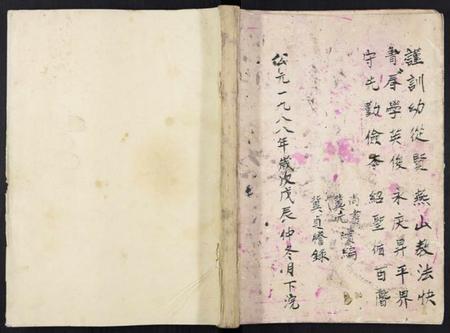 謹訓幼從賢 燕山教法快
書辱學英俊 永庆昇平界
守先勤儉本 紹聖佰百階
尚書續編
龔元
龔貞謄錄
公元一九八八年歲次戊辰仲冬月下浣